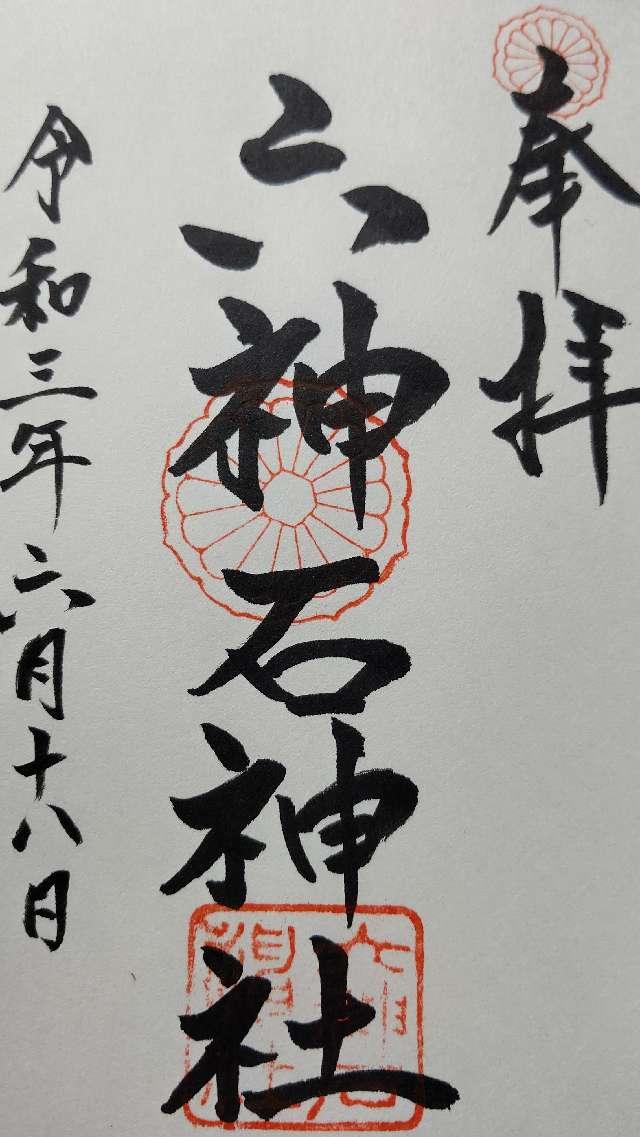 奉拝
六神石神社
令和三年六月十八日